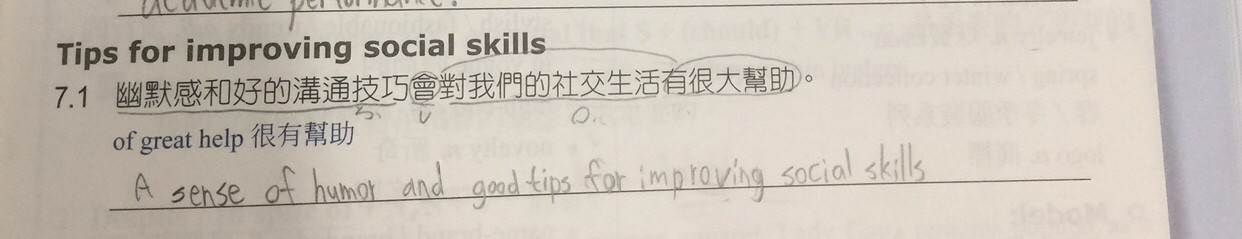 academic performance.
Tips for improving social skills
7.1 幽默感和好的溝通技巧會對我們的社交生活有很大幫助。
S. V O.
of great help 很有幫助
A sense of humor and good tips for improving social skills